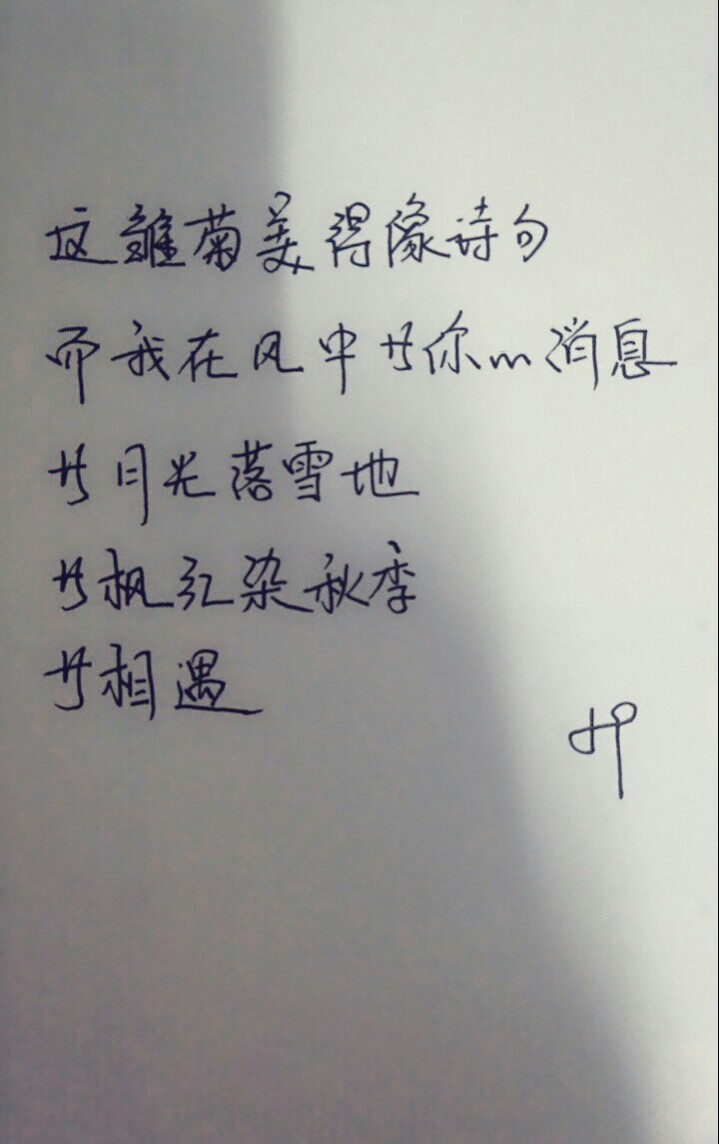 这雏菊美得像诗句
而我在风中等你的消息
等月光落雪地
等枫红染秋季
等相遇